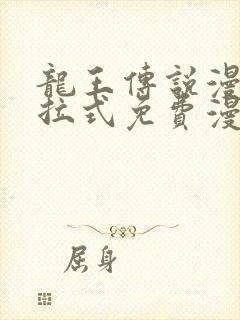 龍王傳說漫
拉式免費漫
屈身